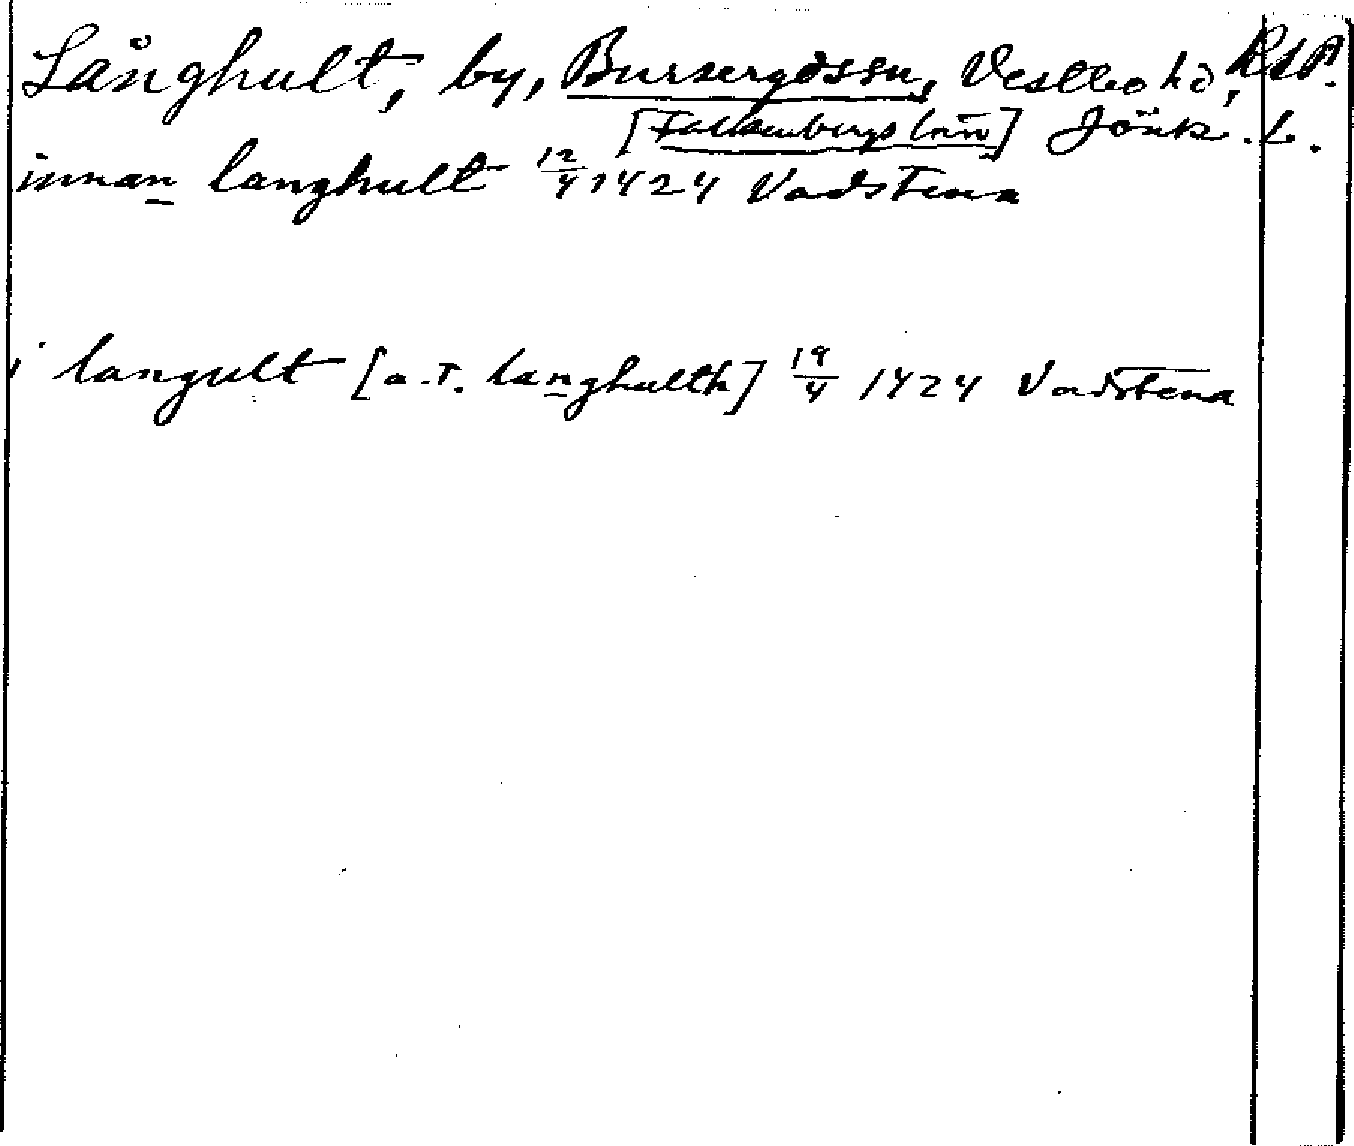 Långhult, by, Burseryds sn, Vestbo hd, RAP.
[Falkenbergs län] Jönk. L.
innan langhult 12/4 1424 Vadstena
i langult [a.T. langhulth] 19/4 1424 Vadstena